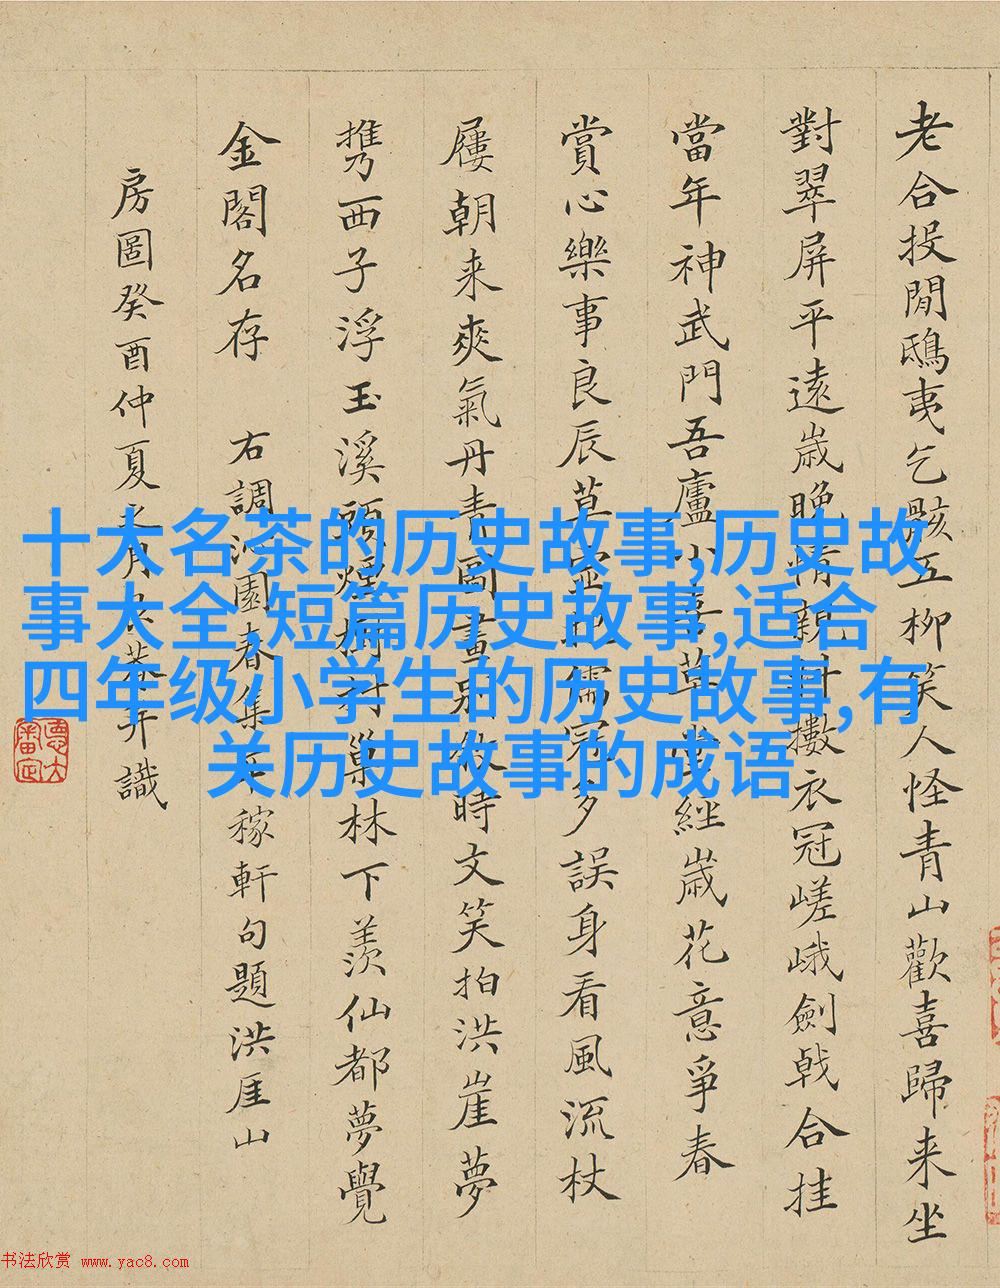 老合投閒鴟夷乞骸五柳笑人怪青山歡喜歸来坐
對翠屏平遠歲晚情親擻衣冠嵯峨劍戟合挂
當年神武門吾廬小草堂經歲花意爭春
賞心樂事良辰莫儒冠多誤身看風流杖
屨朝来爽氣丹青圖畫別時文笑拍洪崖夢
携西子浮玉溪頭煙樹村巢林下羨仙都夢覺
金閣名存 右調沁園春集辛稼軒句題洪厓山
房圖癸酉仲夏之月識
十大名茶的历史故事,历史故
事大全,短篇历史故事,适合
四年级小学生的历史故事,有
关历史故事的成语
书法欣赏 www.yac8.com